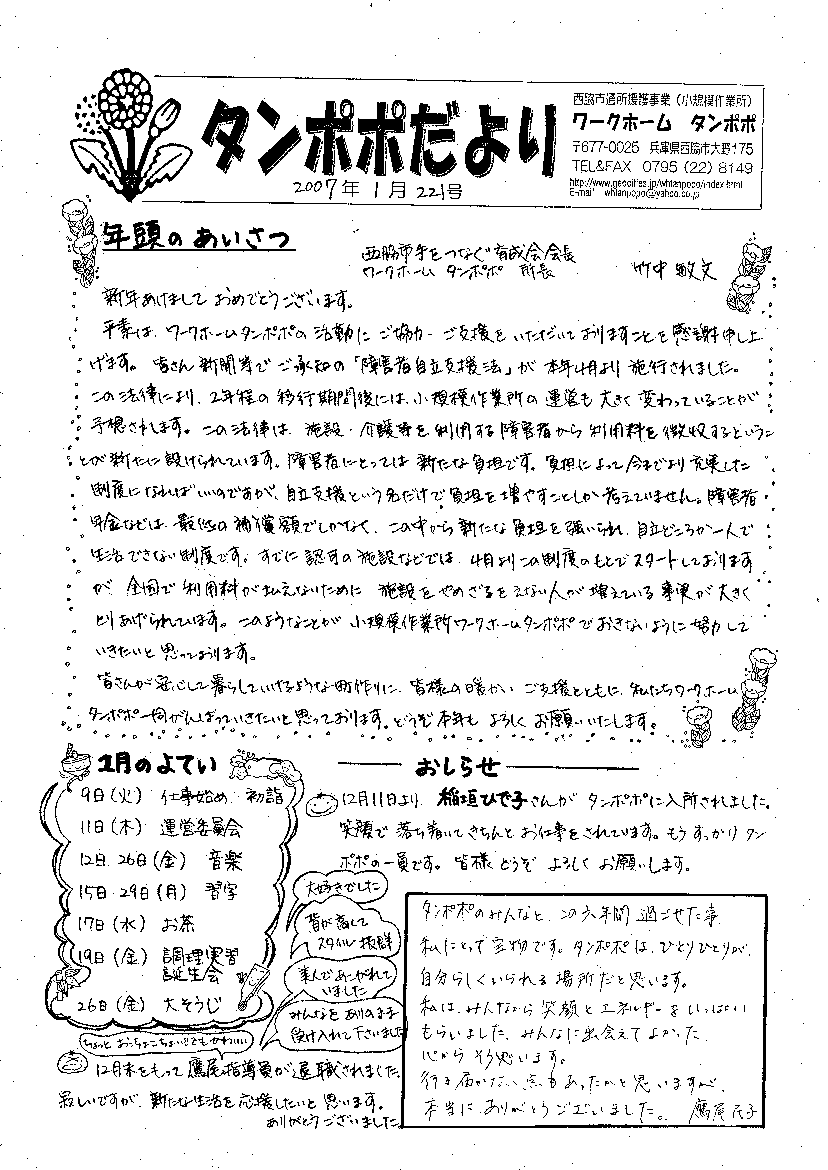 タンポポだより
2007年 1月 221号
西脇市通所援護事業（小規模作業所）
ワークホーム タンポポ
〒677-0025 兵庫県西脇市大野175
TEL&FAX 0795（22）8149
http://www.geocities.jp/whtanpopo/index.html
E-mail whtanpopo@yahoo.co.jp
年頭のあいさつ
西脇市手をつなぐ育成会会長
ワークホーム タンポポ 所長 竹中 敏文
新年あけまして おめでとうございます。
平素は、ワークホームタンポポの活動に ご協力・ご支援を いただいておりますことを感謝申し上
げます。 皆さん新聞等で ご承知の「障害者自立支援法」が 本年4月より 施行されました。
この法律により、2年程の 移行期間後には、小規模作業所の 運営も 大きく 変わっていることが
予想されます。 この法律は、施設・介護等を利用する障害者から 利用料を徴収するというこ
とが新たに設けられています。障害者にとっては 新たな負担です。負担によって今までより充実した
制度になればいいのですが、自立支援という名だけで負担を増やすことしか考えていません。障害者
年金などは、最低の補償額でしかなく、この中から 新たな負担を強いられ、自立どころか一人で
生活できない制度です。すでに 認可の施設などでは、4月よりこの制度のもとでスタートしております
が 全国で 利用料が払えないために 施設をやめざるをえない人が 増えている 事実が大きく
とりあげられています。このようなことが 小規模作業所ワークホームタンポポでおきないように努力して
いきたいと思っております。
皆さんが安心して暮らしていけるような町作りに、皆様の暖かい ご支援とともに、私たちワークホーム
タンポポ一同がんばっていきたいと思っております。どうぞ本年も よろしく お願いいたします。
1月のよてい
9日(火) 仕事始め 初詣
11日(木) 運営委員会
12日、26日(金) 音楽
15日・29日(月) 習字
17日(水) お茶
19日(金) 調理実習
誕生会
26日(金) 大そうじ
おしらせ
12月11日より、稲垣ひで子さんが タンポポに入所されました。
笑顔で 落ち着いてきちんと お仕事をされています。もうすっかり タン
ポポの一員です。 皆様 どうぞ よろしく お願いします。
大好きでした
背が高くて
スタイル抜群
華んであこがれて
いました
みんなをありのまま
受け入れて下さいました
ちょっと おっちょこちょい！でもかわいい
12月末をもって 鷹尾指導員が退職されました。
寂しいですが、新たな生活を応援したいと思います。
ありがとうございました
タンポポのみんなと、この六年間 過ごせた事
私にとって 宝物です。タンポポは、ひとりひとりが、
自分らしくいられる 場所だと思います。
私は、みんなから 笑顔と エネルギーを いっぱい
もらいました。みんなに出会えて よかった
心から そう思います。
行き届かない 点も あったかと 思いますが、
本当に ありがとう ございました。 鷹尾